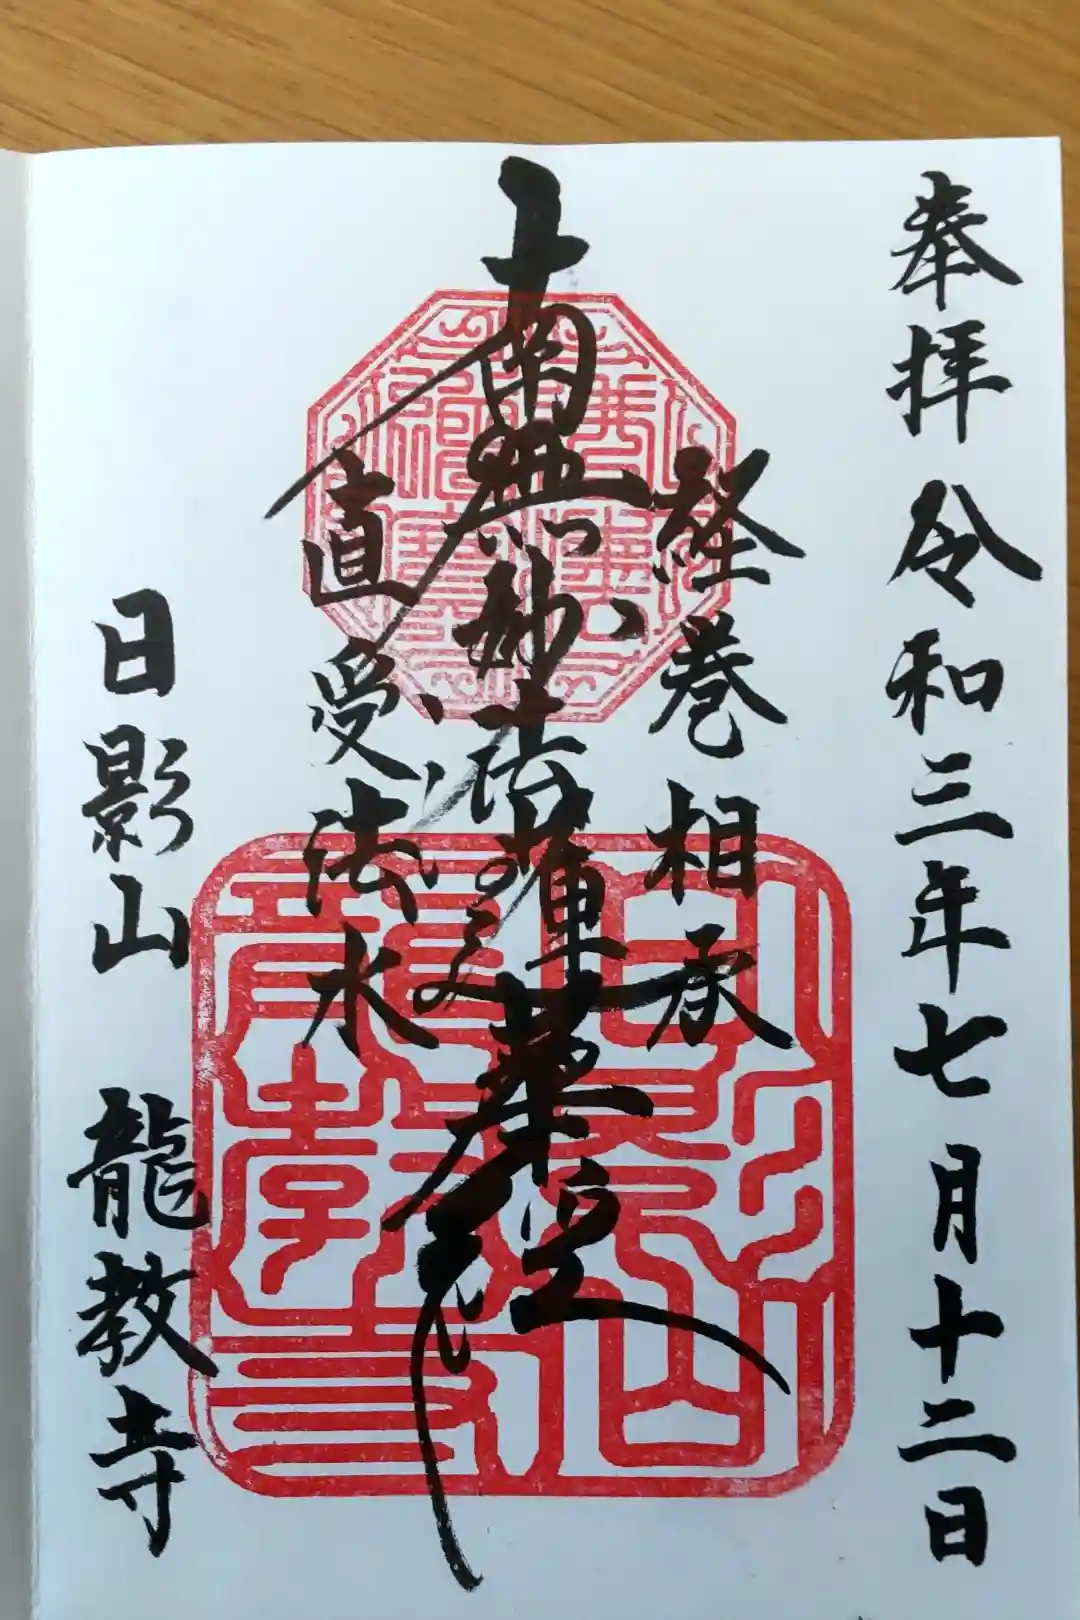 奉拝 令和三年七月十二日
経巻相承
南無妙法蓮華経
直受法水
日影山 龍教寺
日影山
龍教寺